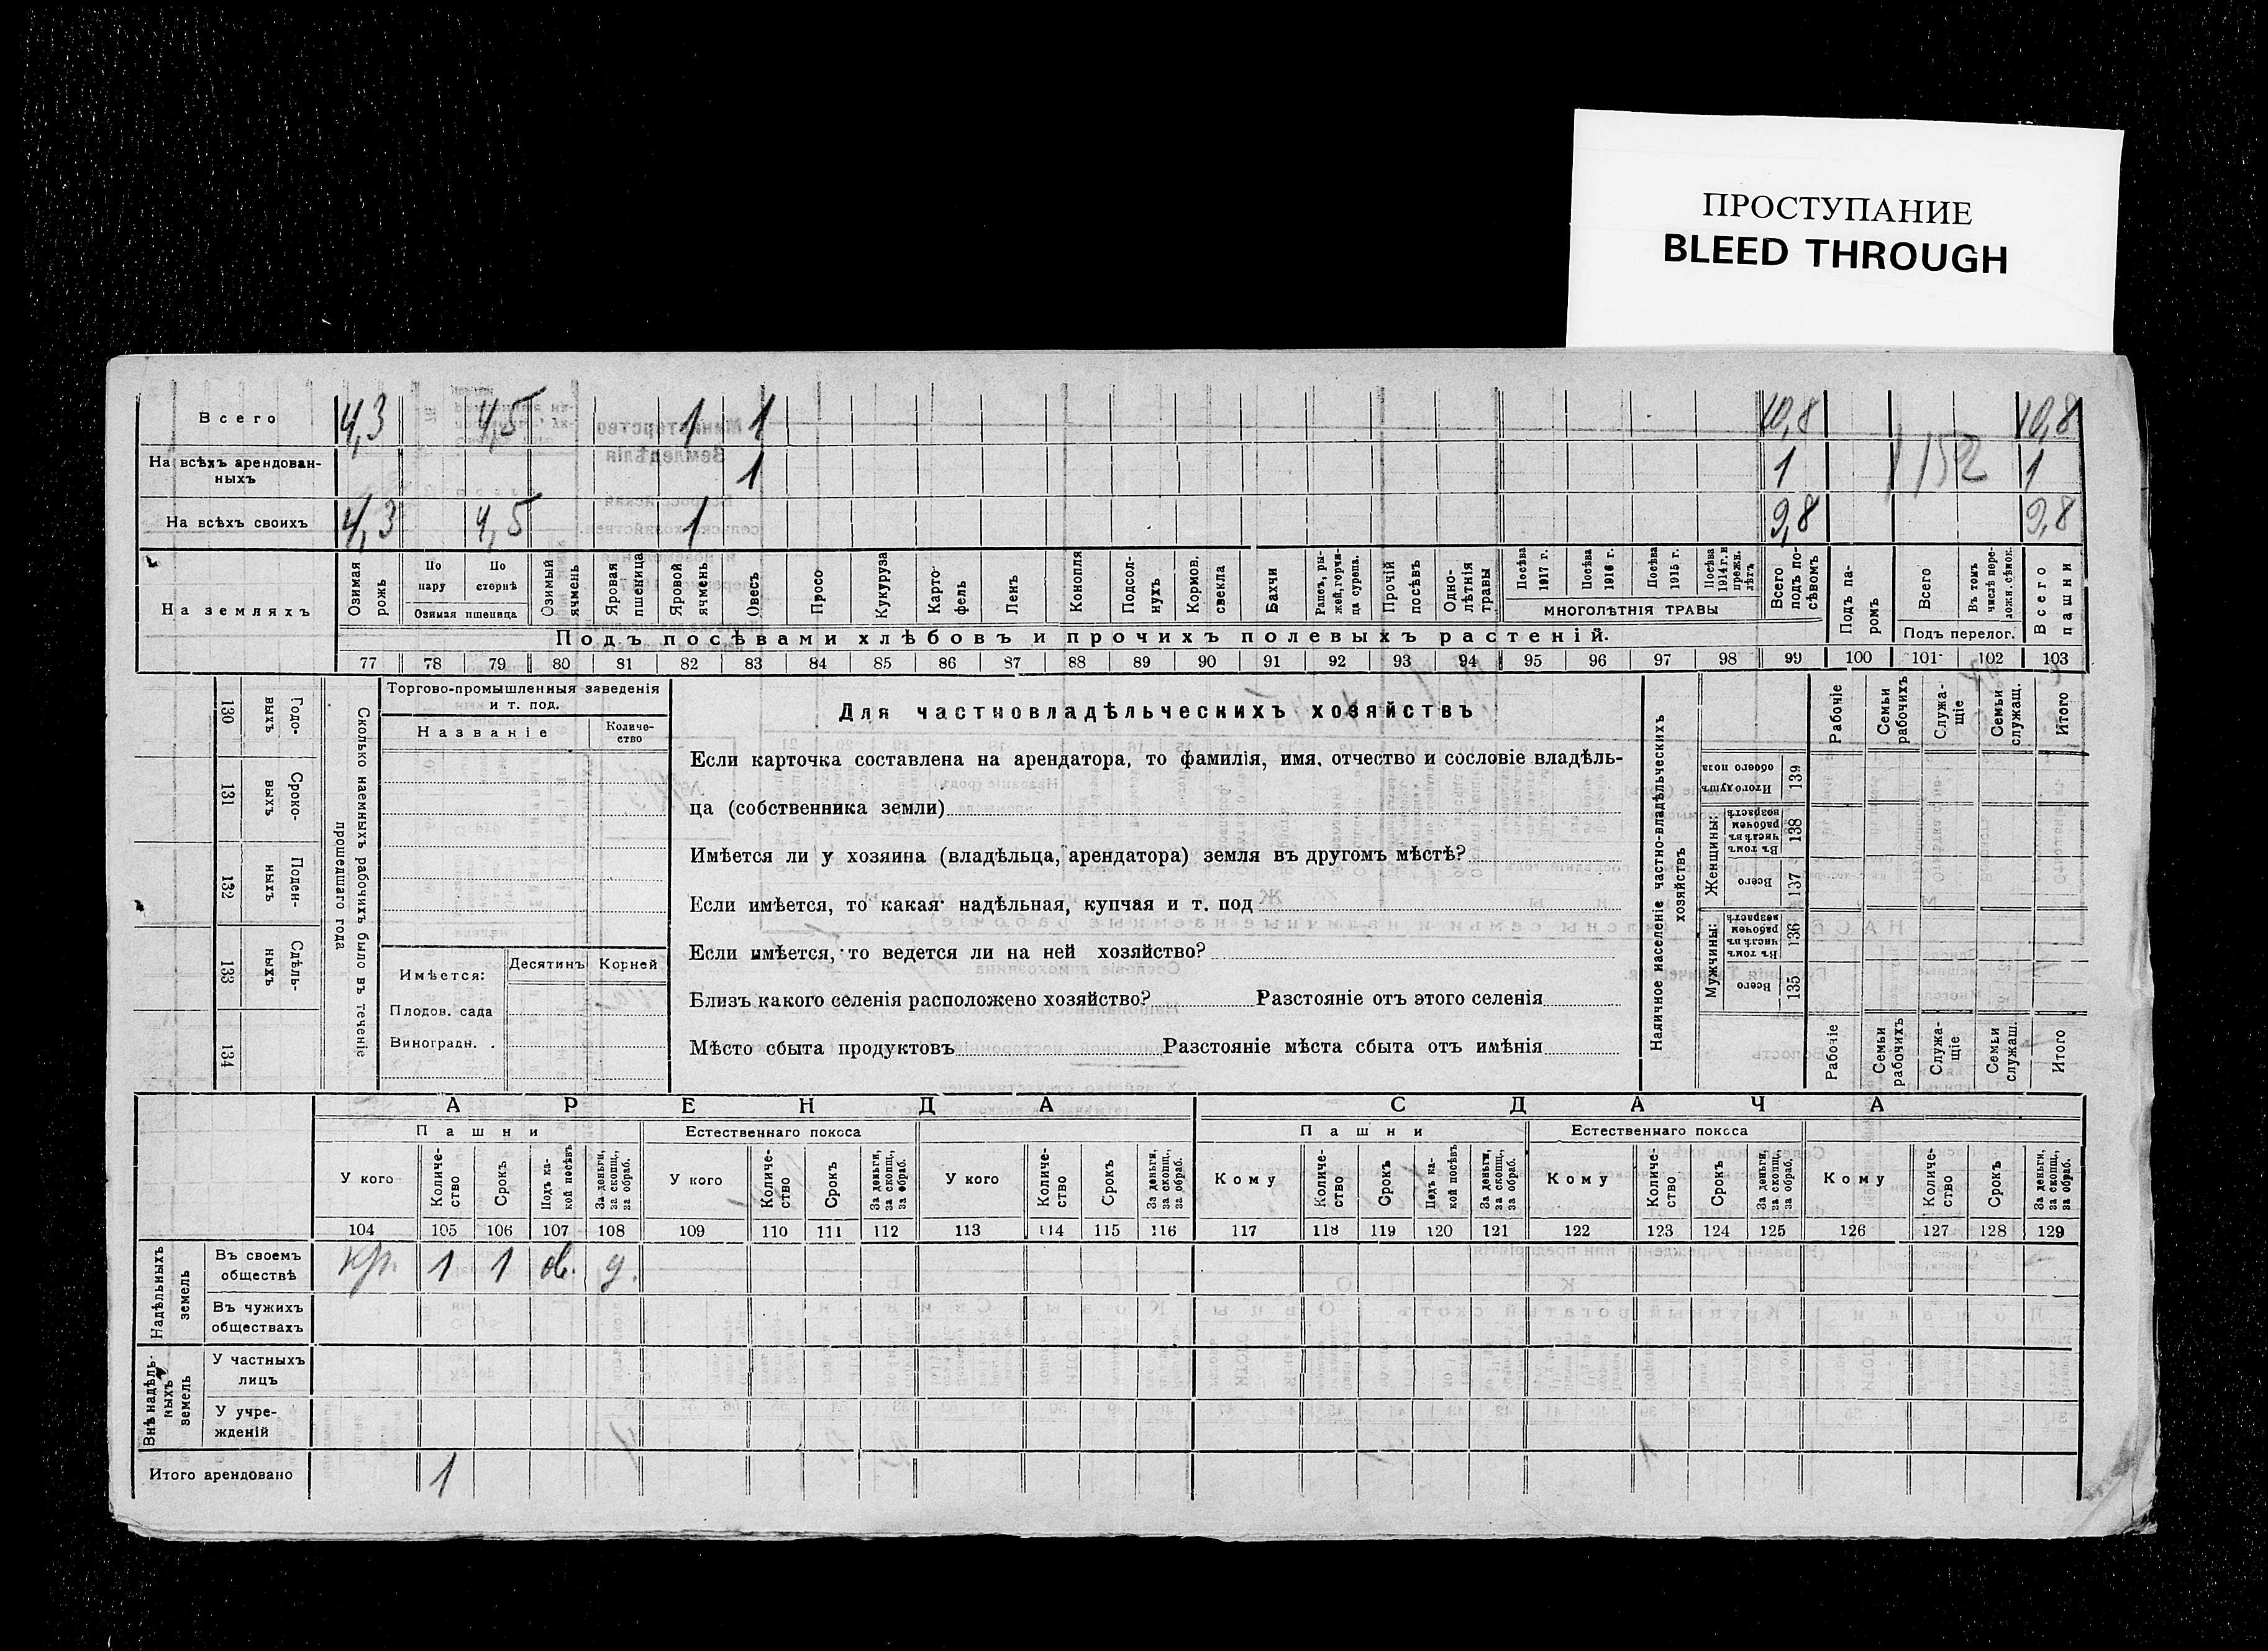 ПРОСТУПАНИЕ
BLEED THROUGH
Всего 4,3 4,5 1 1 10,8 10,8
На всѣхъ арендован-
ныхъ 1 1 152 1
На всѣхъ своихъ 4,3 4,5 1 9,8 9,8
На земляхъ
Озимая рожь
По пару
По стернѣ
Озимая пшеница
Озимый ячмень
Яровая пшеница
Яровой ячмень
Овесъ
Просо
Кукуруза
Карто-
фель
Ленъ
Конопля
Подсол-
нухъ
Кормов.
свекла
Бахчи
Рапсъ, ры-
жей, горчи-
ца сурепа.
Прочій
посѣвъ
Одно-
лѣтнія
травы
Посѣва
1917 г.
Посѣва
1916 г.
Посѣва
1915 г.
Посѣва
1914 г. и
прежн.
лѣтъ
МНОГОЛѢТНІЯ ТРАВЫ
Всего
подъ по-
сѣвомъ
Подъ па-
ромъ
Всего
Въ томъ
числѣ пере-
ложн. сѣнок.
Подъ перелог.
Всего
пашни
Подъ посѣвами хлѣбовъ и прочихъ полевыхъ растеній.
77 78 79 80 81 82 83 84 85 86 87 88 89 90 91 92 93 94 95 96 97 98 99 100 101 102 103
130 Годо-
выхъ
131 Сроко-
выхъ
132 Поден-
ныхъ
133 Сдѣль-
ныхъ
134
Сколько наемныхъ рабочихъ было въ теченіе
прошедшаго года
Торгово-промышленныя заведенія
и т. под.
Названіе
Количе-
ство
Имѣется:
Десятинъ
Корней
Плодов. сада
Виноградн.
Для частновладѣльческихъ хозяйствъ
Если карточка составлена на арендатора, то фамилія, имя, отчество и сословіе владѣль-
ца (собственника земли)
Имѣется ли у хозяина (владѣльца, арендатора) земля въ другомъ мѣстѣ?
Если имѣется, то какая: надѣльная, купчая и т. под
Если имѣется, то ведется ли на ней хозяйство?
Близъ какого селенія расположено хозяйство? Разстояніе отъ этого селенія
Мѣсто сбыта продуктовъ Разстояніе мѣста сбыта отъ имѣнія
Наличное населеніе частно-владѣльческихъ
хозяйствъ
Рабочіе
Семьи
рабочихъ
Служа-
щіе
Семьи
служащ.
Итого
Итого душъ
обоего пола
139
Женщины:
Въ томъ
числѣ въ
рабочемъ
возрастѣ
138
Всего
137
Мужчины:
Въ томъ
числѣ въ
рабочемъ
возрастѣ
136
Всего
135
Рабочіе
Семьи
рабочихъ
Служа-
щіе
Семьи
служащ.
Итого
АРЕНДА
СДАЧА
Пашни
Естественнаго покоса
Пашни
Естественнаго покоса
У кого
Количе-
ство
Срокъ
Подъ ка-
кой посѣвъ
За деньги,
за скопщ.,
за обраб.
У кого
Количе-
ство
Срокъ
За деньги,
за скопщ.,
за обраб.
У кого
Количе-
ство
Срокъ
За деньги,
за скопщ.,
за обраб.
Кому
Количе-
ство
Срокъ
Подъ ка-
кой посѣвъ
За деньги,
за скопщ.,
за обраб.
Кому
Количе-
ство
Срокъ
За деньги,
за скопщ.,
за обраб.
Кому
Количе-
ство
Срокъ
За деньги,
за скопщ.,
за обраб.
104 105 106 107 108 109 110 111 112 113 114 115 116 117 118 119 120 121 122 123 124 125 126 127 128 129
Надѣльныхъ
земель
Въ своемъ
обществѣ
кр. 1 1 ов. д.
Въ чужихъ
обществахъ
Внѣ надѣль-
ныхъ
земель
У частныхъ
лицъ
У учре-
жденій
Итого арендовано 1